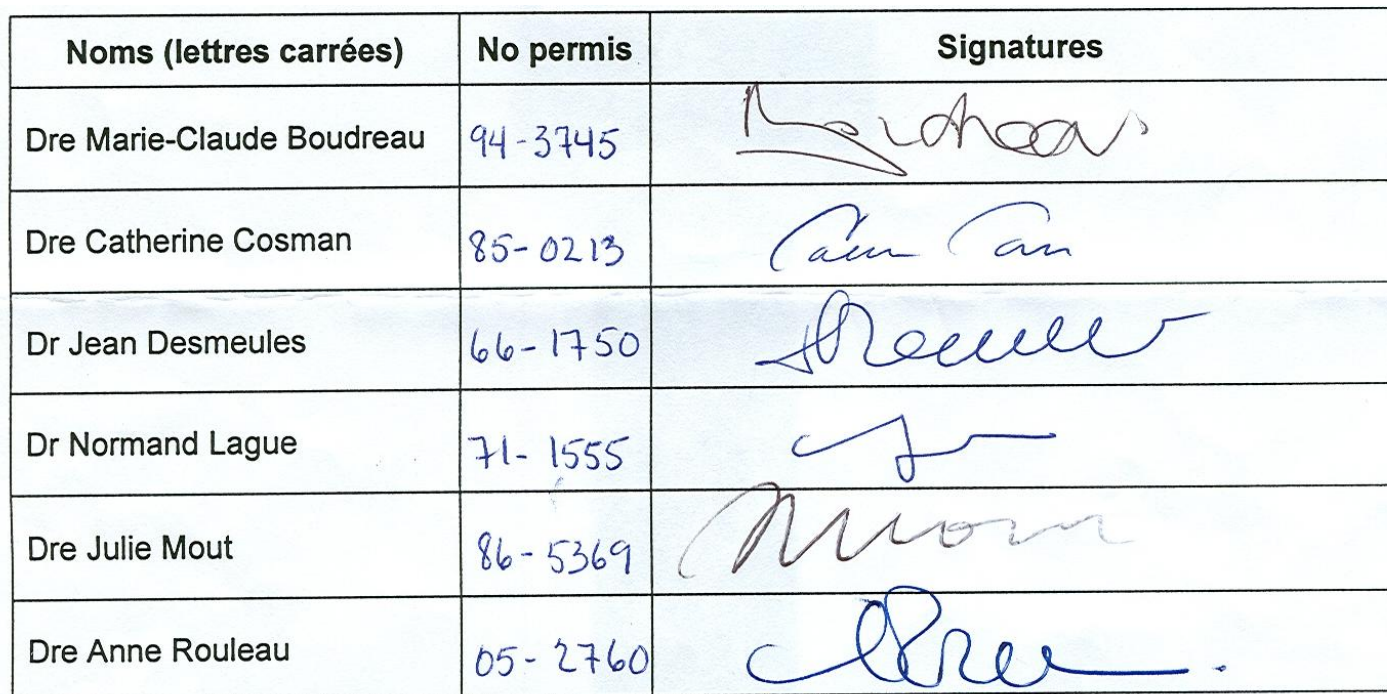 Noms (lettres carrées) No permis Signatures
Dre Marie-Claude Boudreau 94-3745
Dre Catherine Cosman 85-0213
Dr Jean Desmeules 66-1750
Dr Normand Lague 71-1555
Dre Julie Mout 86-5369
Dre Anne Rouleau 05-2760